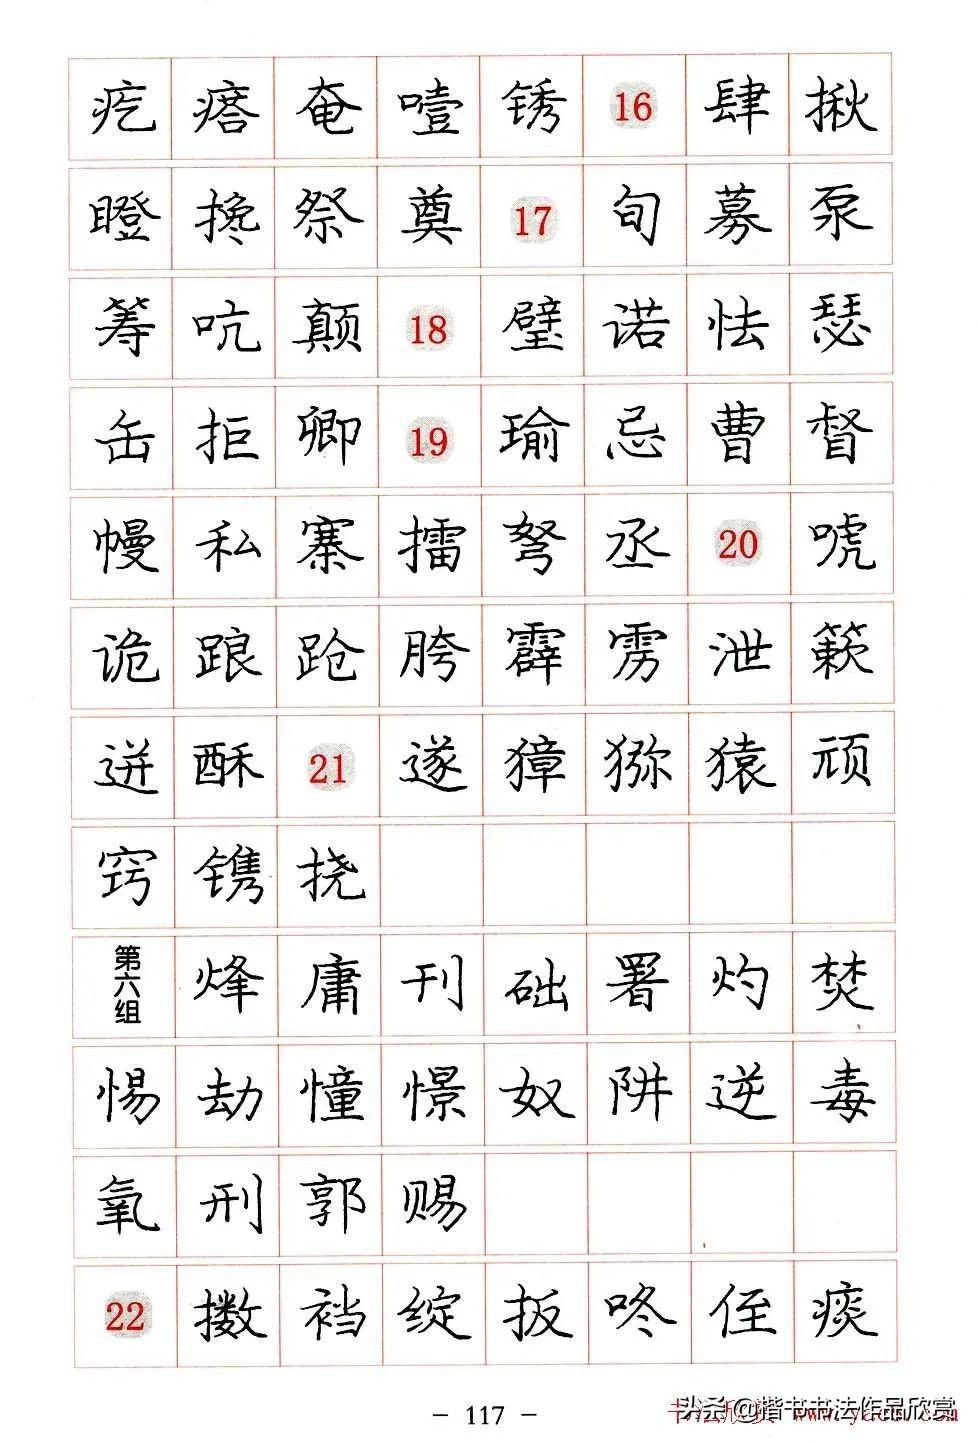 疙瘩奄噎锈16肆揪
瞪搀祭奠17旬募泵
筹吭颠18璧诺怯瑟
缶拒卿19瑜忌曹督
幔私寨擂弩丞20唬
诡踉跄胯霹雳泄簌
迸酥21遂獐猕猿顽
窍镌挠
第六组烽庸刊础署灼焚
惕劫憧憬奴阱逆毒
氧刑郭赐
22擞裆绽扳咚侄痰
- 117 -
头条@楷书书法作品欣赏